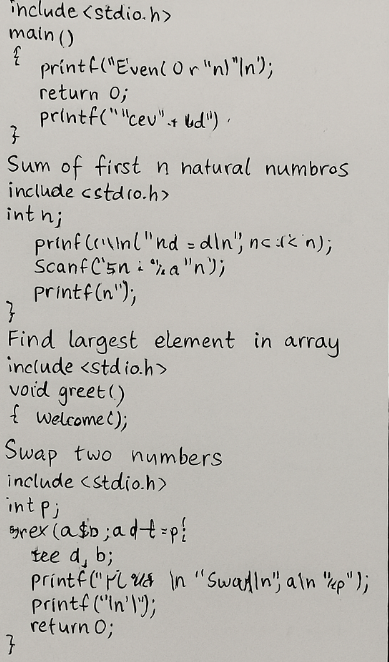 include <stdio.h>
main()
{ printf("Even( 0 r "n)"\n');
return 0;
printf(""
}
Sum of first n natural numbros
include <stdio.h>
int n;
"nd = d\n",
Scanf(
printf(n");
}
Find largest element in array
include <stdio.h>
void greet()
{ Welcome();
Swap two numbers
include <stdio.h>
int p;
b;
printf(" \n "Swad\n", a\n
printf("\n'\');
return 0;
}